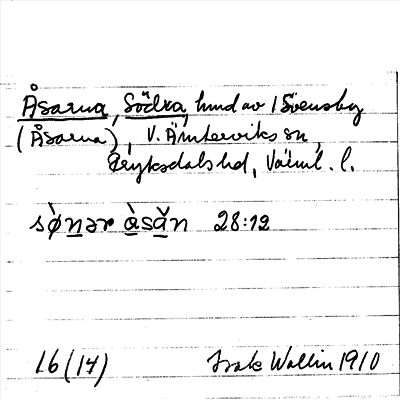 Åsarna, Södra, hmd av 1 Svensby
(Åsarna), V. Ämterviks sn,
Fryksdals hd, Värml. l.
sø̀nər àsăn 28:12
16 (14) Isak Wallin 1910